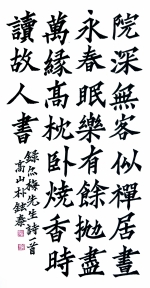 院深無客似禪居晝
永春眠樂有餘抛盡
萬緣高枕卧燒香時
讀故人書
錄念梅先生詩一首
高山朴鉉泰